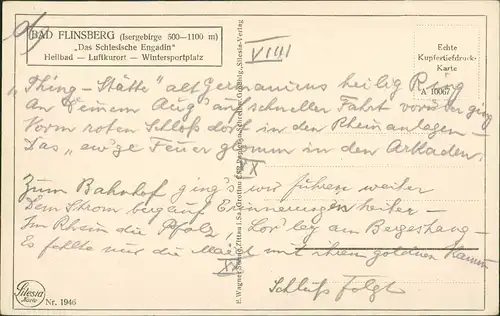 BAD FLINSBERG (Isergebirge 500—1100 m)
„Das Schlesische Engadin“
Heilbad — Luftkurort — Wintersportplatz
VIII
Echte
Kupfertiefdruck-
Karte
A 1006
„Thing-Stätte“ alt Germaniens heilig Ring
An Deinem Aug' auf schneller Fahrt vorüber ging
Vorm roten Schloß dort in den Rheinanlagen —
Das „ew'ge Feuer glomm in den Arkaden.
IX
Zum Bahnhof ging's wir fuhren weiter
Dem Strom bergauf Erinnerungen heiter —
Im Rhein die Pfalz, Lor'ley am Bergeshang —
Es fehlte nur die Maid mit ihrem goldnen Kamm
XII
Schluß folgt
Silesia
Karte
Nr. 1946
Silesia-Verlag